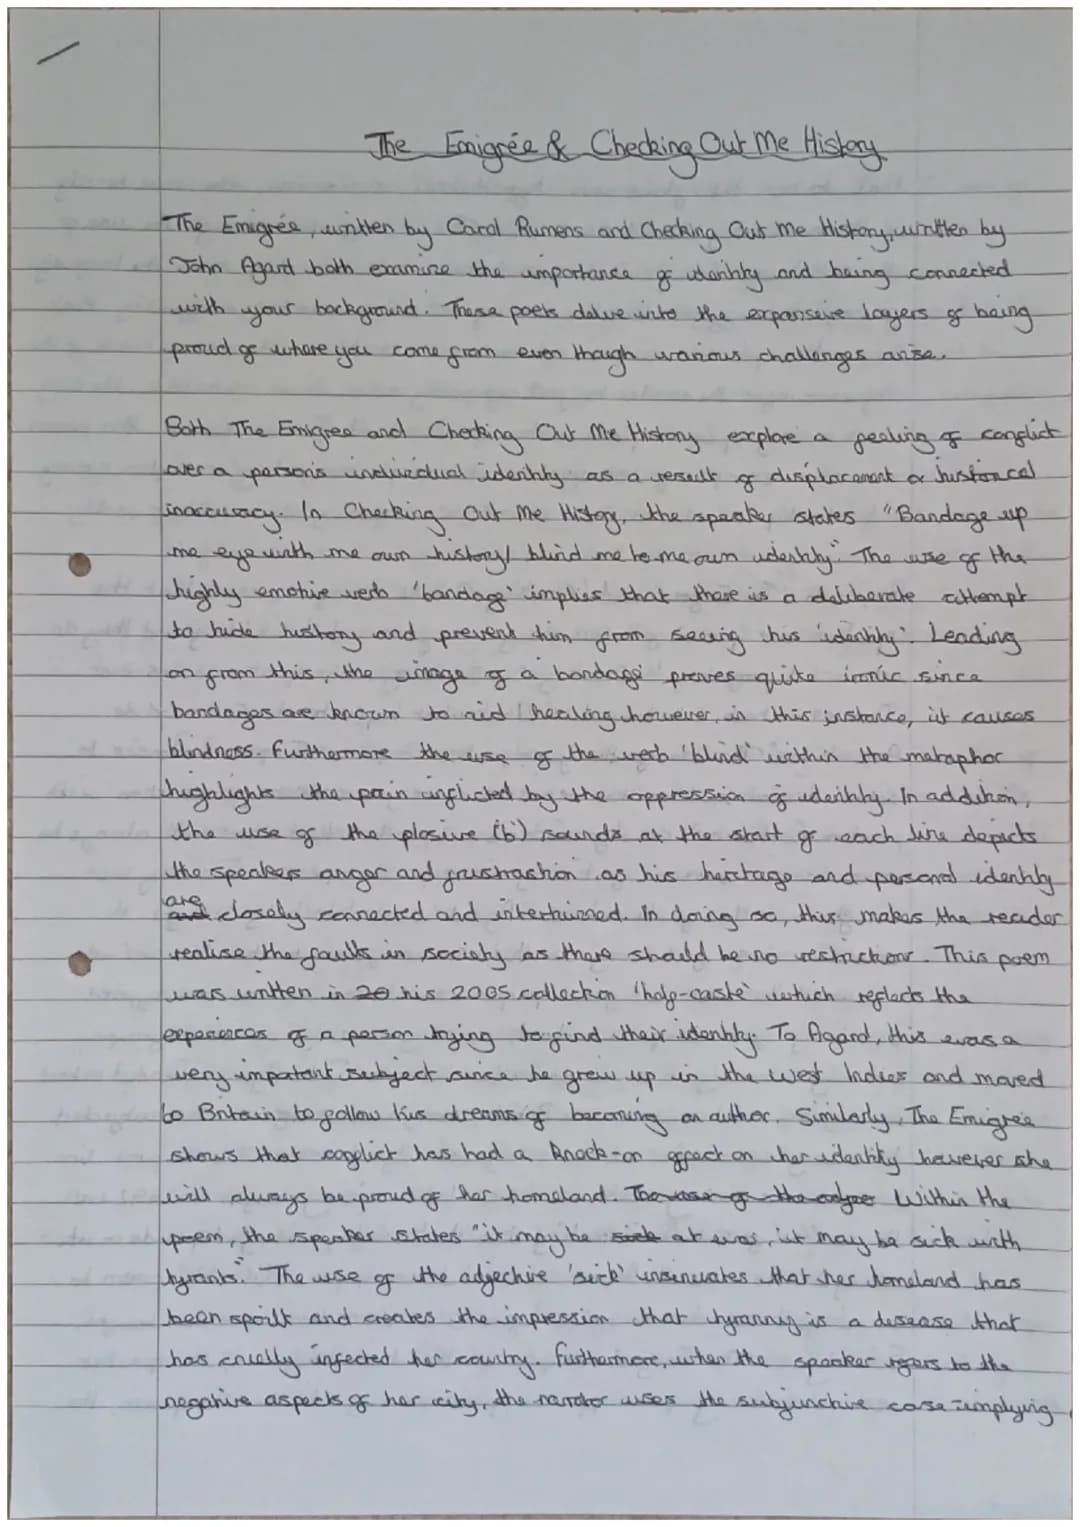 The Emigrée & Checking Out Me History
The Emigrée, written by Carol Rumens and Checking Out Me History, written by
John Agard both examine the importance of identity and being connected
with your background. These poets delve into the expansive layers of being
proud of where you come from even though various challenges arise.
Both The Emigree and Checking Out Me History explore a feeling of conflict
over a person's individual identity as a result of displacement or historical
inaccuracy. In Checking Out Me History, the speaker states "Bandage up
me eye with me own history/ blind me to me own identity". The use of the
highly emotive verb 'bandage' implies that there is a deliberate attempt
to hide history and prevent him from seeing his 'identity'. Leading
on from this, the image of a 'bandage' proves quite ironic since
bandages are known to aid healing however, in this instance, it causes
blindness. Furthermore the use of the verb 'blind' within the metaphor
highlights the pain inflicted by the oppression of identity. In addition,
the use of the plosive (b') sounds at the start of each line depicts
the speakers anger and frustrashion as his heritage and personal identity
are closely connected and intertwined. In doing so, this makes the reader
realise the faults in society as there should be no restrictions. This poem
was written in 20 his 2005 collection 'half-caste' which reflects the
experiences of a person trying to find their identity. To Agard, this was a
very important subject since he grew up in the West Indies and moved
to Britain to follow his dreams of becoming an author. Similarly, The Emigrée
shows that conflict has had a knock-on effect on her identity however she
will always be proud of her homeland. The use of the Within the
poem, the speaker states "it may be sick at war, it may be sick with
tyrants". The use of the adjective 'sick' insinuates that her homeland has
been spoilt and creates the impression that tyranny is a disease that
has cruelly infected her country. Furthermore, when the speaker refers to the
negative aspects of her city, the narrator uses the subjunctive case implying